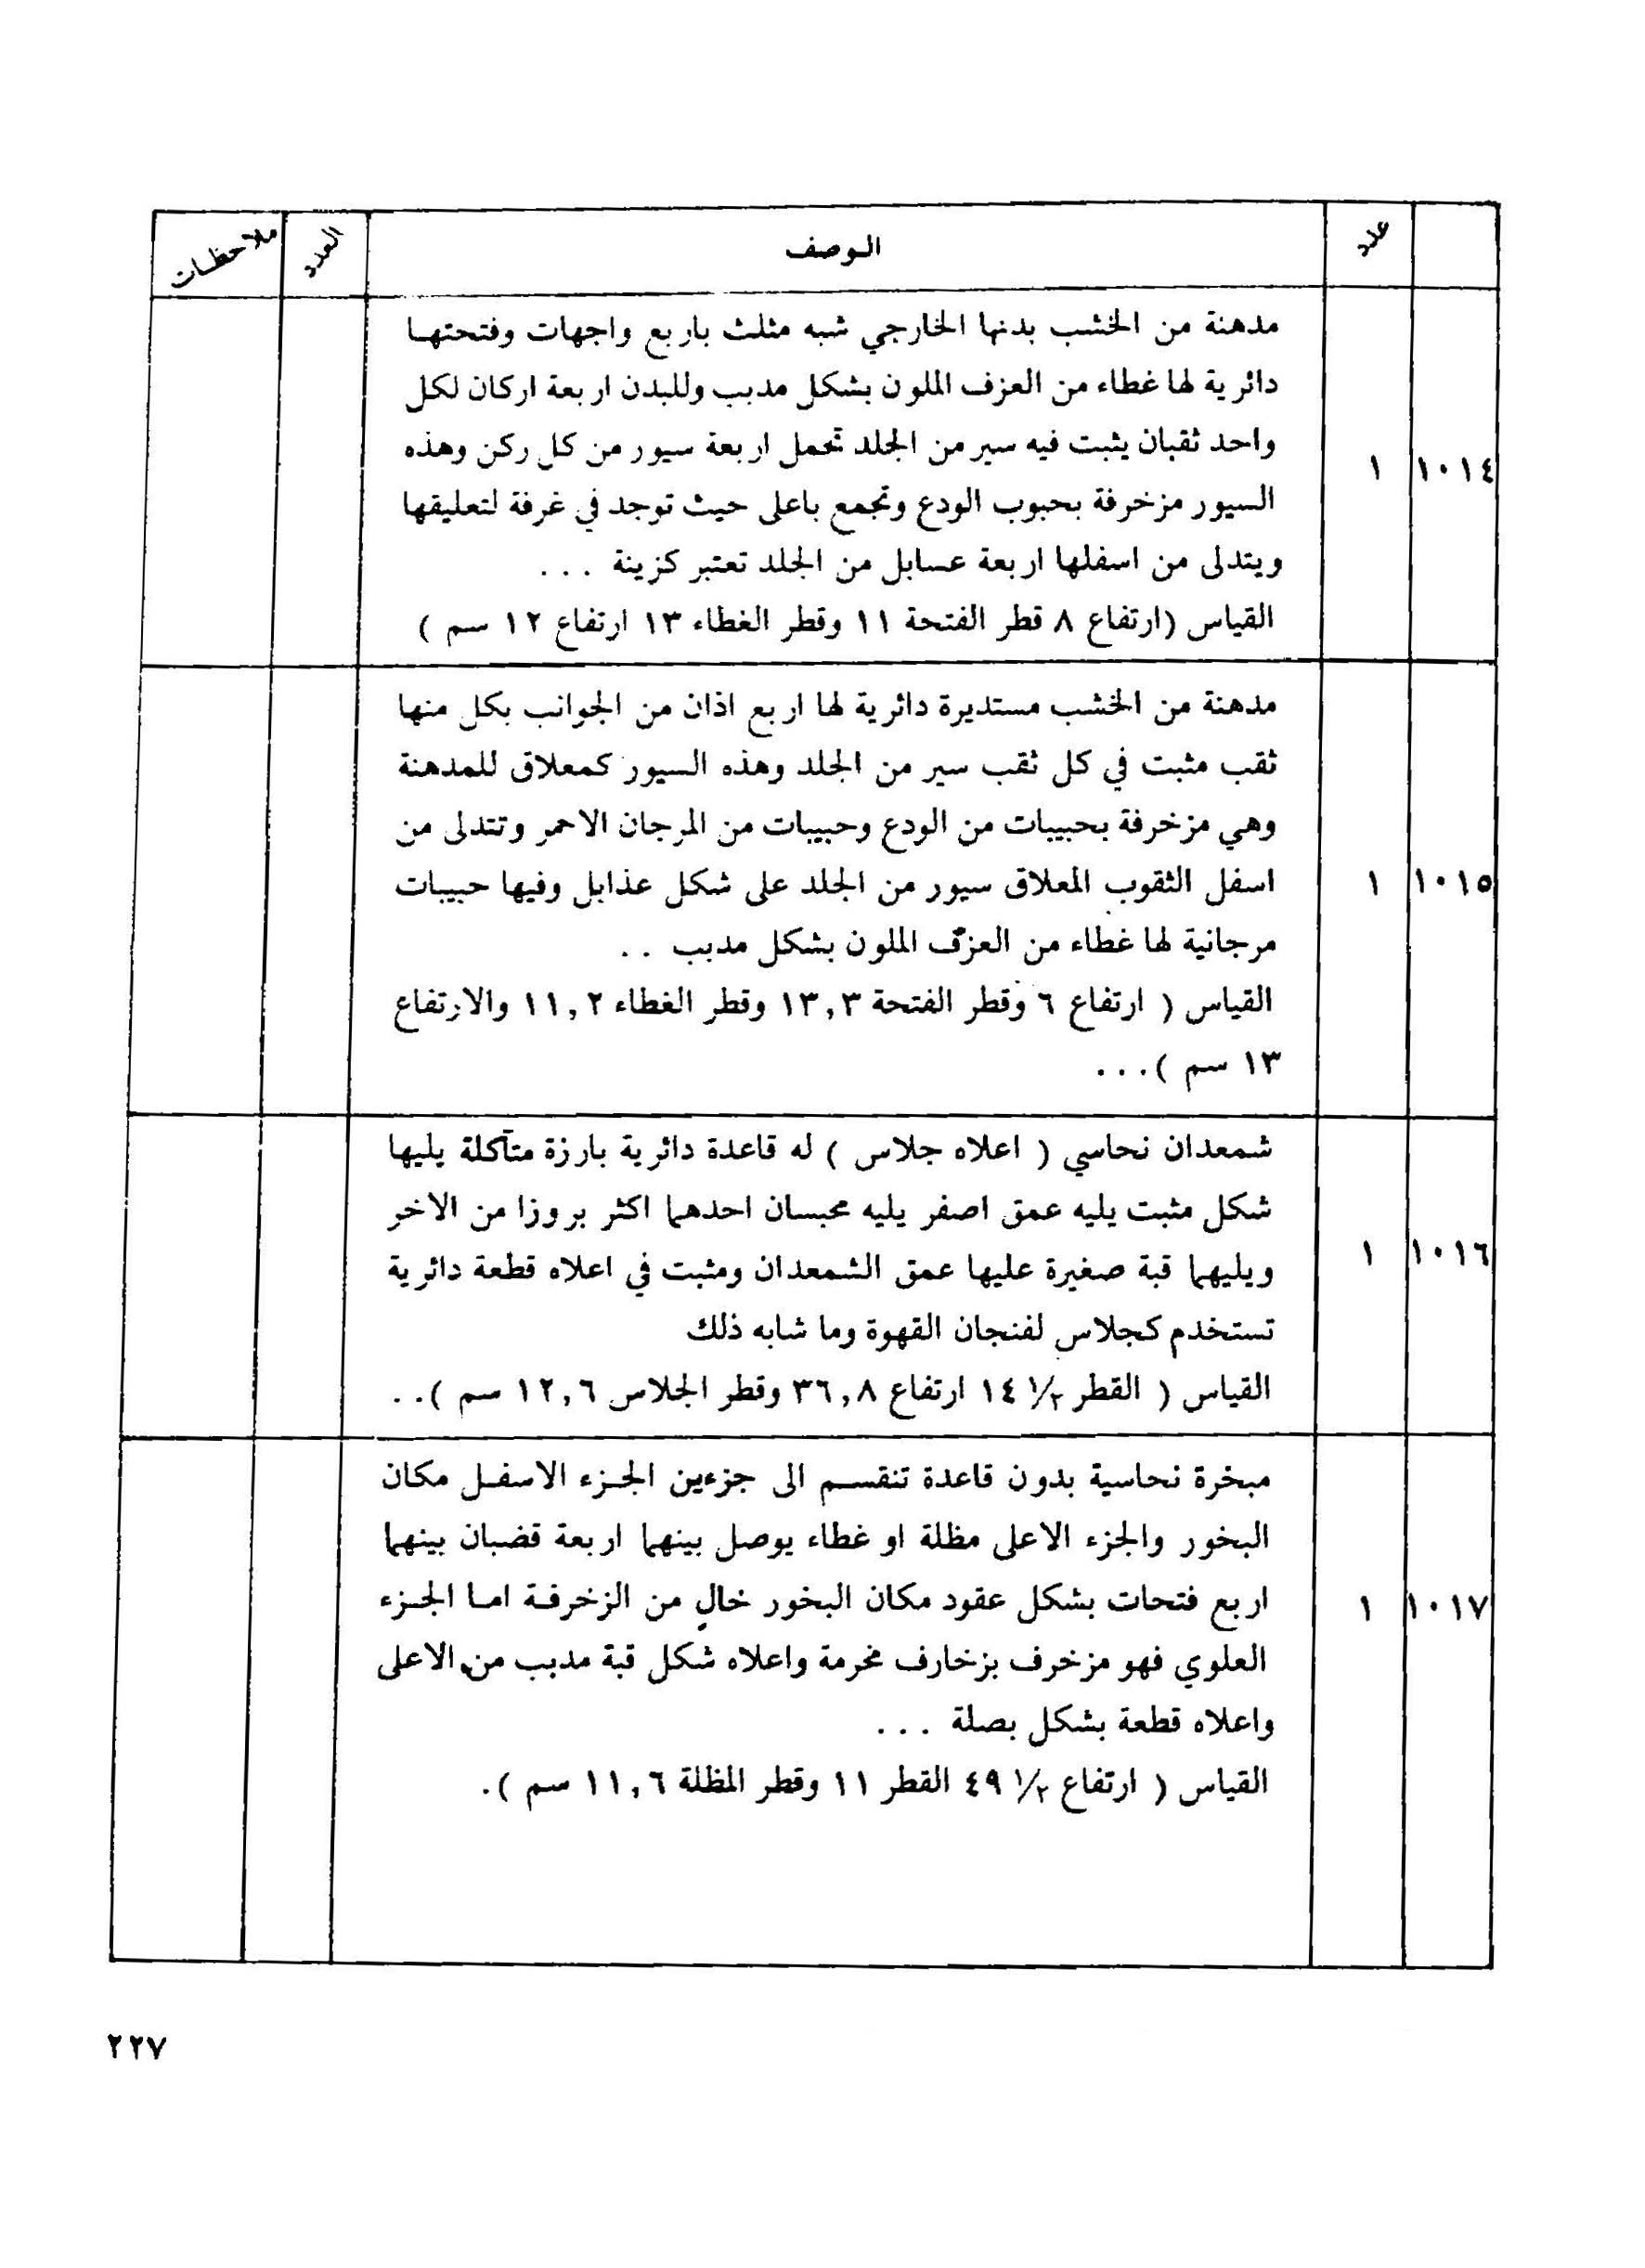 عدد الـوصف العدد ملاحظـات
مدهنة من الخشب بدنها الخارجي شبه مثلث باربع واجهات وفتحتهـا
دائرية لها غطاء من العزف الملون بشكل مدبب وللبدن اربعة اركان لكل
واحد ثقبان يثبت فيه سير من الجلد تحمل اربعة سيور من كل ركن وهذه
١٠١٤ ١
السيور مزخرفة بحبوب الودع وتجمع باعلى حيث توجد في غرفة لتعليقها
ويتدلى من اسفلها اربعة عسابل من الجلد تعتبر كزينة ...
القياس (ارتفاع ٨ قطر الفتحة ١١ وقطر الغطاء ١٣ ارتفاع ١٢ سم )
مدهنة من الخشب مستديرة دائرية لها اربع اذان من الجوانب بكل منها
ثقب مثبت في كل ثقب سير من الجلد وهذه السيور كمعلاق للمدهنة
وهي مزخرفة بحبيبات من الودع وحبيبات من المرجان الاحمر وتتدلى من
١٠١٥ ١ اسفل الثقوب المعلاق سيور من الجلد على شكل عذابل وفيها حبيبات
مرجانية لها غطاء من العزف الملون بشكل مدبب ..
القياس ( ارتفاع ٦ وقطر الفتحة ١٣,٣ وقطر الغطاء ١١,٢ والارتفاع
١٣ سم )...
شمعدان نحاسي ( اعلاه جلاس ) له قاعدة دائرية بارزة متآكلة يليها
شكل مثبت يليه عمق اصفر يليه محبسان احدهما اكثر بروزا من الاخر
١٠١٦ ١ ويليهما قبة صغيرة عليها عمق الشمعدان ومثبت في اعلاه قطعة دائرية
تستخدم كجلاس لفنجان القهوة وما شابه ذلك
القياس ( القطر ١/٢ ١٤ ارتفاع ٣٦,٨ وقطر الجلاس ١٢,٦ سم )..
مبخرة نحاسية بدون قاعدة تنقسـم الى جزءين الجـزء الاسفـل مكان
البخور والجزء الاعلى مظلة او غطاء يوصل بينهما اربعة قضبان بينهما
١٠١٧ ١ اربع فتحات بشكل عقود مكان البخور خالٍ من الزخرفـة امـا الجـزء
العلوي فهو مزخرف بزخارف مخرمة واعلاه شكل قبة مدبب من الاعلى
واعلاه قطعة بشكل بصلة ...
القياس ( ارتفاع ١/٢ ٤٩ القطر ١١ وقطر المظلة ١١,٦ سم ).
٢٢٧